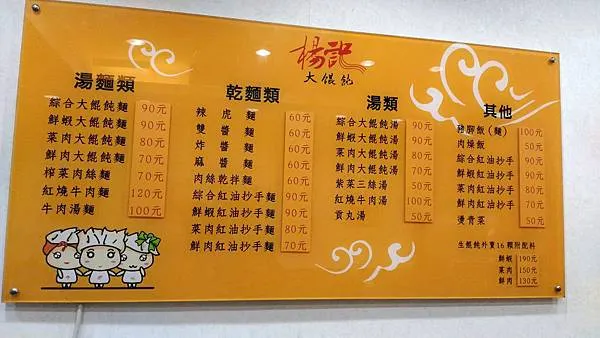 楊記
大餛飩
湯麵類
綜合大餛飩麵 90元
鮮蝦大餛飩麵 90元
菜肉大餛飩麵 80元
鮮肉大餛飩麵 70元
榨菜肉絲麵 70元
紅燒牛肉麵 120元
牛肉湯麵 100元
乾麵類
辣虎麵 60元
雙醬麵 60元
炸醬麵 60元
麻醬麵 60元
肉絲乾拌麵 60元
綜合紅油抄手麵 90元
鮮蝦紅油抄手麵 90元
菜肉紅油抄手麵 80元
鮮肉紅油抄手麵 70元
湯類
綜合大餛飩湯 90元
鮮蝦大餛飩湯 90元
菜肉大餛飩湯 80元
鮮肉大餛飩湯 70元
紫菜三絲湯 50元
紅燒牛肉湯 100元
貢丸湯 50元
其他
豬腳飯(麵) 100元
肉燥飯 50元
綜合紅油抄手 90元
鮮蝦紅油抄手 90元
菜肉紅油抄手 80元
鮮肉紅油抄手 70元
燙青菜 50元
生餛飩外賣16顆附配料
鮮蝦 190元
菜肉 150元
鮮肉 130元